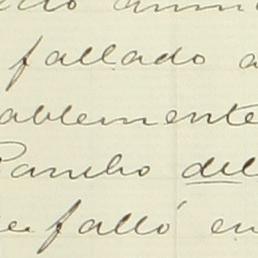 fallado a
ablemente
Rancho del
falló en